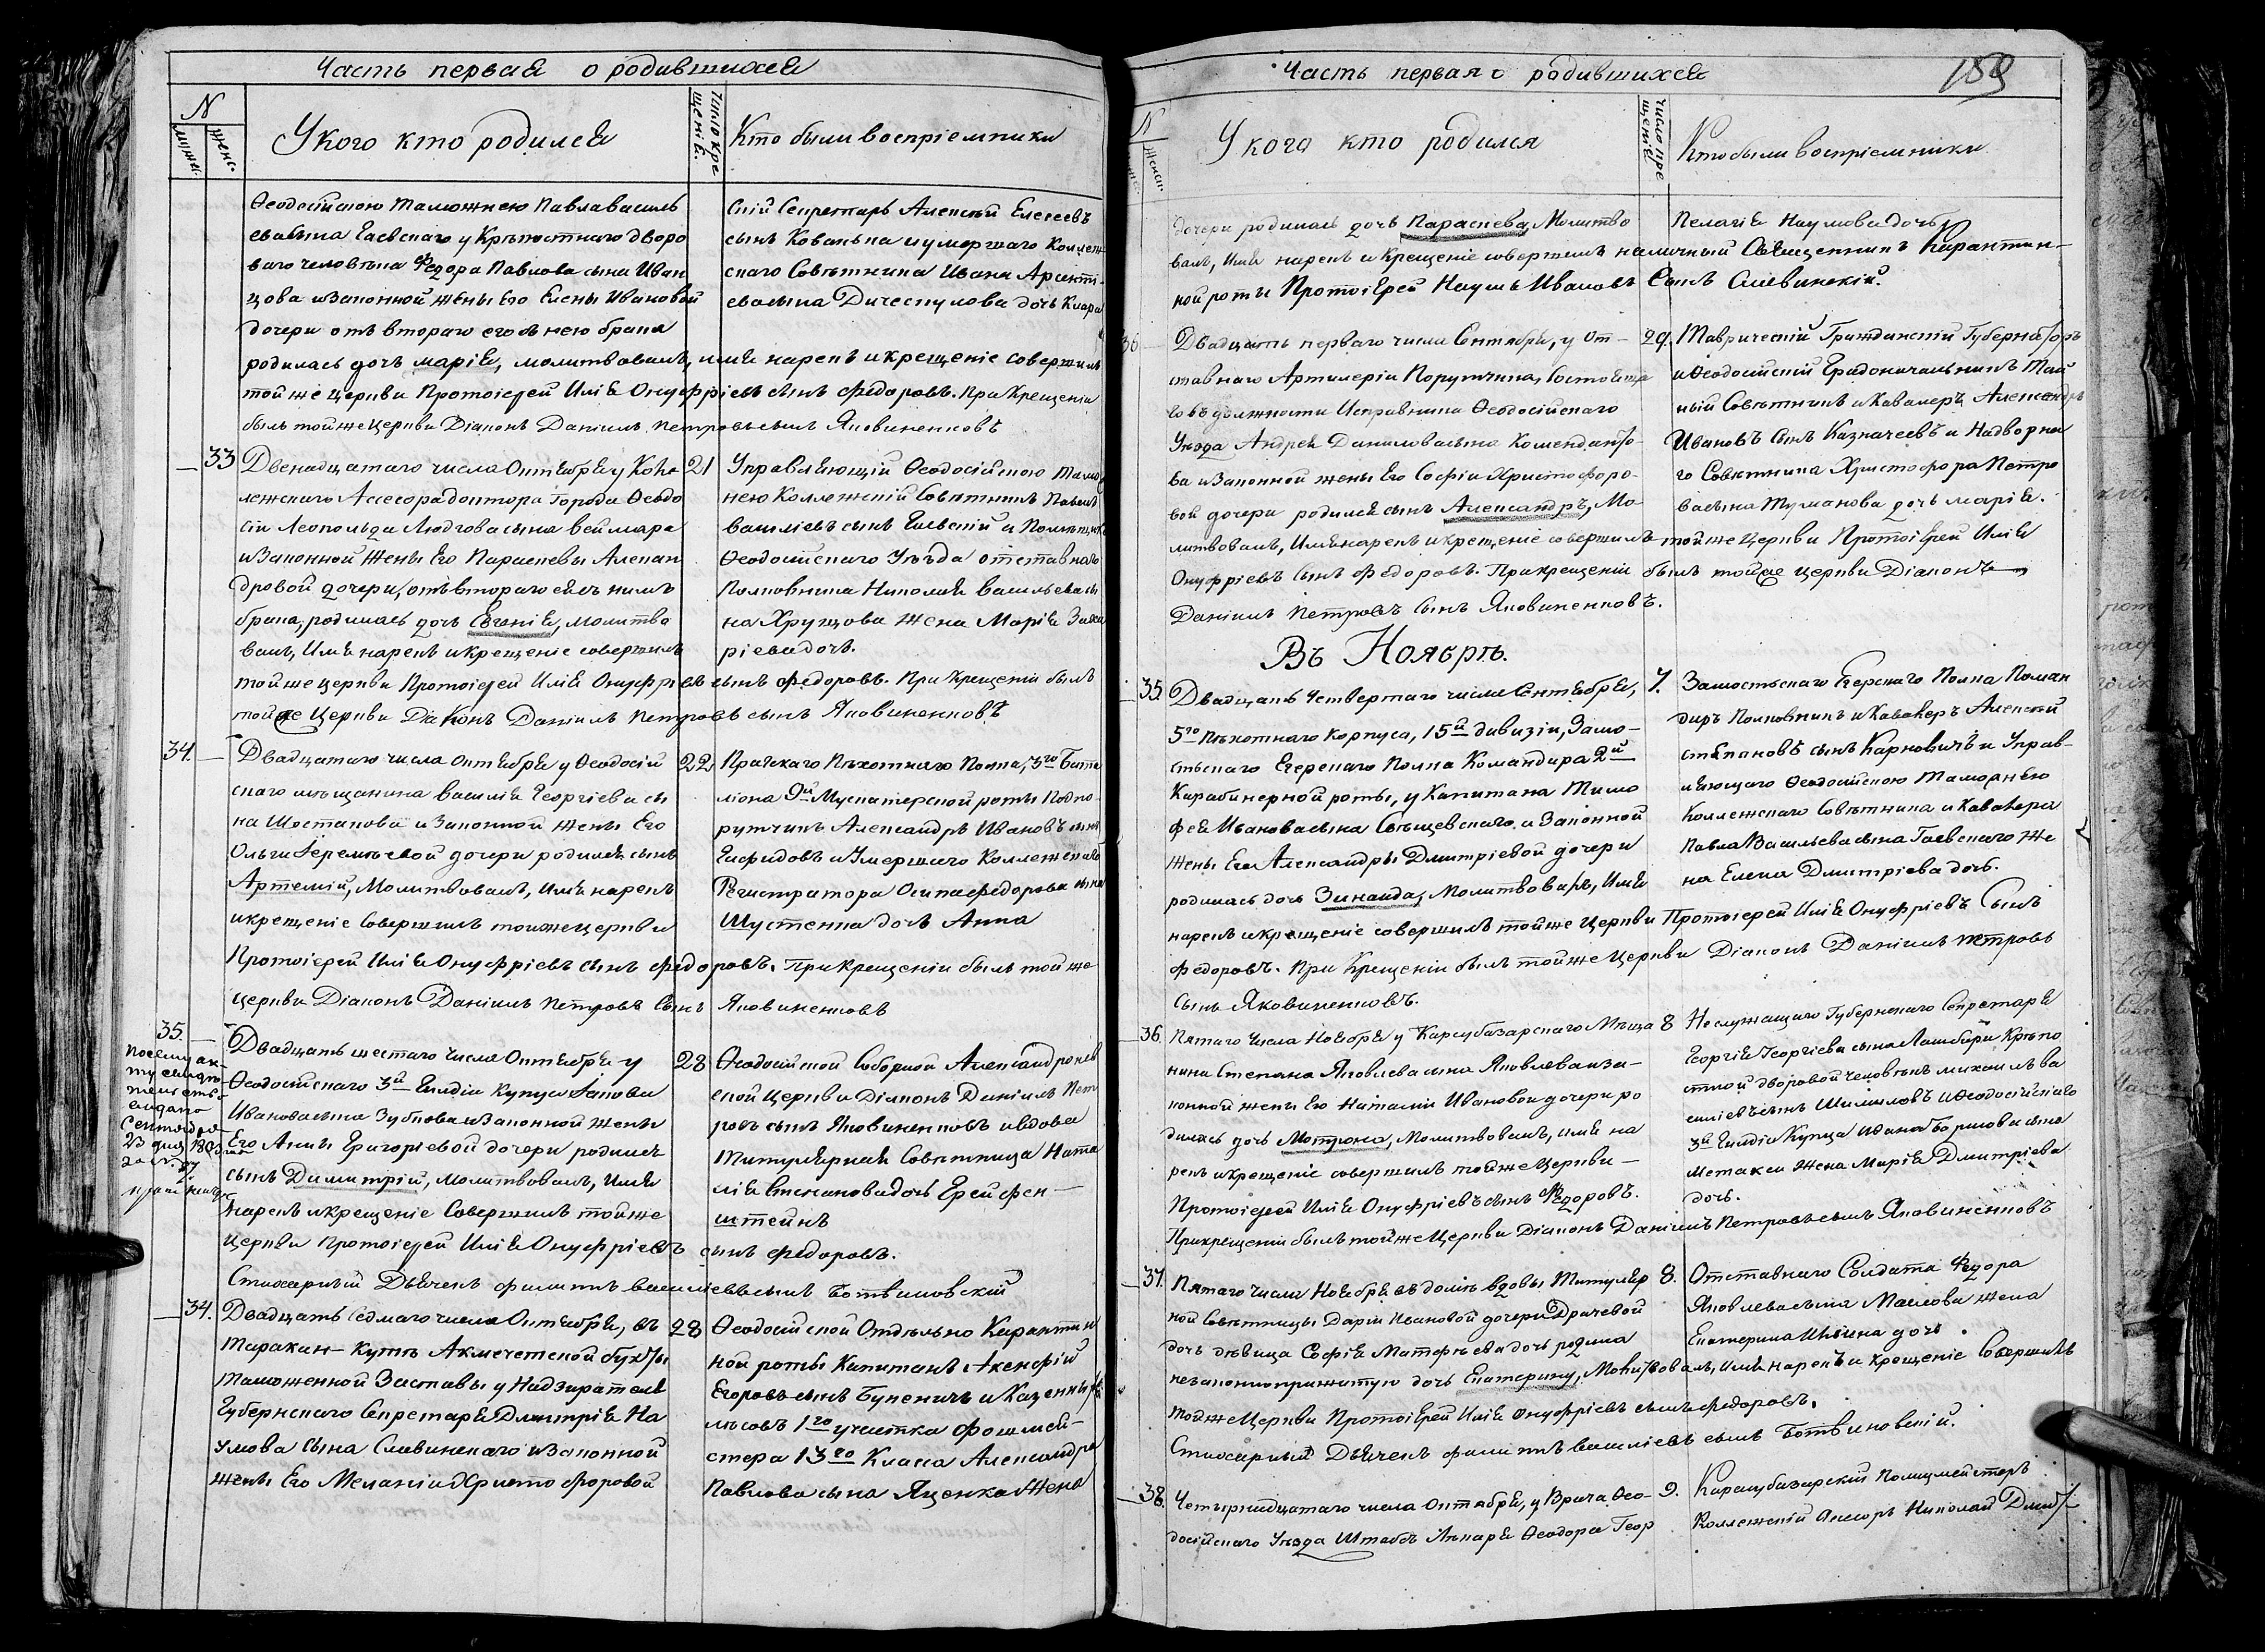 Часть первая о родившихся
N
мужес.
женс.
У кого кто родился
Число крещенія.
Кто были воспріемники
Ѳеодосійскою Таможнею Павла Василь
ева сына Гаевскаго у Крѣпостнаго дворо
ваго человѣка Федора Павлова сына Иван
цова и Законной жены Его Елены Ивановой
дочери отъ втораго его съ нею брака
родилась дочь Марія, молитвовалъ, имя нарекъ и крещеніе совершилъ
той же церкви Протоіерей Илія Онуфріевъ сынъ Федоровъ. При Крещеніи
былъ той же Церкви Діаконъ Даніилъ Петровъ сынъ Яковиненковъ
скій Секретарь Алексѣй Елесеевъ
сынъ Кованька и умершаго Коллеж
скаго Совѣтника Ивана Арсенті
ева сына Дическулова дочь Клара
33
Двенадцатаго числа Октября у Кол
лежскаго Ассесора доктора города Ѳеодо
сіи Леопольда Людгова сына Веймара
и Законной Жены Его Параскевы Алексан
дровой дочери, отъ втораго ея съ нимъ
брака, родилась дочь Евгенія, молитво
валъ, Имя нарекъ и крещеніе совершилъ
той же церкви Протоіерей Илія Онуфріевъ сынъ Федоровъ. При Крещеніи былъ
той же Церкви Діаконъ Даніилъ Петровъ сынъ Яковиненковъ
21
Управляющій Ѳеодосійскою Тамо
жнею Коллежскій Совѣтникъ Павелъ
Василіевъ сынъ Гаевскій и Помѣщика
Ѳеодосійскаго Уѣзда отставнаго
Полковника Николая Васильева сы
на Хрущова Жена Марія Заха
ріева дочь.
34.
Двадцатаго числа Октября у Ѳеодосій
скаго мѣщанина Василія Георгіева сы
на Шостакова и Законной Жены Его
Ольги Іеремѣевой дочери родился сынъ
Артемій, Молитвовалъ, имя нарекъ
и крещеніе Совершилъ той же церкви
Протоіерей Илія Онуфріевъ сынъ Федоровъ. При крещеніи былъ той же
церкви Діаконъ Даніилъ Петровъ Сынъ Яковиненковъ
22
Пражскаго Пѣхотнаго Полка, 3го Бата
ліона 9й Мускатерской роты Подпо
рутчикъ Александръ Ивановъ сынъ
Ецфидовъ и Умершаго Коллежскаго
Регистратора Осипа Федорова сына
Шустенка дочь Анна
35.
По сему ак
ту свидѣ
тельство
выдано
Сентября
23 дня
за №
Двадцать шестаго Числа Октября у
Ѳеодосійскаго 3й Гилдіи Купца Іакова
Иванова сына Зубкова и Законной Жены
Его Анны Григоріевой дочери родился
сынъ Димитрій, молитвовалъ, имя
нарекъ и крещеніе Совершилъ той же
церкви Протоіерей Илія Онуфріевъ сынъ Федоровъ.
Стихарный Дьячекъ Филиппъ Василіевъ сынъ Ботвиновскій
28
Ѳеодосійской Соборной Александроневъ
ской Церкви Діаконъ Даніилъ Пет
ровъ сынъ Яковиненковъ и вдова
Титулярная Совѣтница Ната
лія Степанова дочь Грейфен
штейнъ
34.
Двадцать Седмаго числа Октября, въ
Таракан-Кутѣ Акмечетской бухты
Таможенной Заставы у Надзирателя
Губернскаго Секретаря Дмитрія На
умова Сына Славинскаго и Законной
жены Его Меланіи Христофоровой
28
Ѳеодосійской Отдѣльно Карантин
ной роты Капитанъ Аксенфій
Егоровъ сынъ Буневичъ и Казенныхъ
лѣсовъ 1го участка Форшмей
стера 13го Класа Александра
Павлова сына Яценка Жена
Часть первая о родившихся
189
N
женс.
У кого кто родился
Число крещенія.
Кто были воспріемники
дочери родилась дочь Параскева, Молитво
валъ, Имя нарекъ и Крещеніе совершилъ наличный Священникъ Карантин
ной роты Протоіерей Наумъ Ивановъ Сынъ Славинскій.
Пелагія Наумова дочь
36
Двадцать перваго числа Сентября, у От
ставнаго Артилеріи Порутчика, Состояща
го въ должности Исправника Ѳеодосійскаго
Уѣзда Андрея Данилова сына Комендан
ва и Законной жены Его Софіи Христофоро
вой дочери родился сынъ Александръ, Мо
литвовалъ, Имя нарекъ и крещеніе совершилъ той же Церкви Протоіерей Илія
Онуфріевъ Сынъ Федоровъ. При крещеніи былъ той же церкви Діаконъ
Даніилъ Петровъ Сынъ Яковиненковъ.
29.
Таврическій Гражданскій Губернаторъ
и Ѳеодосійскій Градоначальникъ Тай
ный Совѣтникъ и Кавалеръ Александръ
Ивановъ Сынъ Казначеевъ и Надворна
го Совѣтника Христофора Петро
ва сына Туманова дочь Марія.
Въ Ноябрѣ.
35
Двадцать Четвертаго числа Сентября,
5го Пѣхотнаго Корпуса, 15й дивизіи, Замо
стьскаго Егерскаго Полка Командира 2й
Карабинерной роты, у Капитана Тимо
фея Иванова сына Свѣщевскаго и Законной
Жены Его Александры Дмитріевой дочери
родилась дочь Зинаида, Молитвовалъ, Имя
нарекъ и крещеніе совершилъ той же Церкви Протоіерей Илія Онуфріевъ Сынъ
Федоровъ. При Крещеніи былъ той же Церкви Діаконъ Даніилъ Петровъ
Сынъ Яковиненковъ.
7.
Замостьскаго Егерскаго Полка Коман
диръ Полковникъ и Кавалеръ Алексѣй
Степановъ сынъ Карновичъ и Управ
ляющаго Ѳеодосійскою Таможнею
Коллежскаго Совѣтника и Кавалера
Павла Васильева сына Гаевскаго Же
на Елена Дмитріева дочь.
36.
Пятаго Числа Ноября у Карасубазарскаго Мѣща
нина Степана Яковлева сына Яковлева и за
конной жены Его Наталіи Ивановой дочери ро
дилась дочь Мотрона, Молитвовалъ, имя на
рекъ и крещеніе совершилъ той же Церкви
Протоіерей Илія Онуфріевъ сынъ Федоровъ.
При крещеніи былъ той же Церкви Діаконъ Даніилъ Петровъ сынъ Яковиненковъ
8
Неслужащаго Губернскаго Секретаря
Георгія Георгіева сына Лашбири Крѣпо
стной дворовой человѣкъ Михаилъ Ва
силіевъ сынъ Шишловъ и Ѳеодосійскаго
3й Гилдіи Купца Ивана Борисова сына
Метакси Жена Марія Дмитріева
дочь.
37.
Пятаго Числа Ноября въ домѣ вдовы Титуляр
ной Совѣтницы Даріи Ивановой дочери Драчевой
дочь дѣвица Софія Матфѣева дочь родила
незаконноприжитую дочь Екатерину, Молитвовалъ, имя нарекъ и крещеніе Совершилъ
той же Церкви Протоіерей Илія Онуфріевъ сынъ Федоровъ.
Стихарный Дьячекъ Филиппъ Василіевъ сынъ Ботвиновскій.
8.
Отставнаго Солдата Федора
Яковлева сына Маслова Жена
Екатерина Ильина дочь.
38.
Четырнадцатаго числа Октября, у Врача Ѳео
досійскаго Уѣзда Штабсъ Лѣкаря Ѳеодора Геор
9.
Карасубазарскій Полицмейстеръ
Коллежскій Асесоръ Николай Дмит